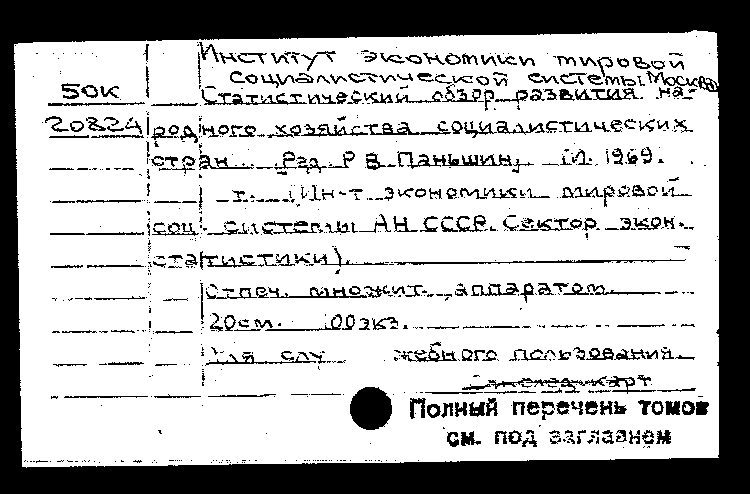 Институт экономики мировой
социалистической системы. Москва
50К
Статистический обзор развития на-
20824
родного хозяйства социалистических
стран. Ред. Р В Паньшин, М. 1969.
т. (Ин-т экономики мировой
соц. системы АН СССР. Сектор экон.
статистики).
Отпеч. множит. аппаратом.
20см. 100экз.
Для слу жебного пользования.
Полный перечень томов
см. под заглавием